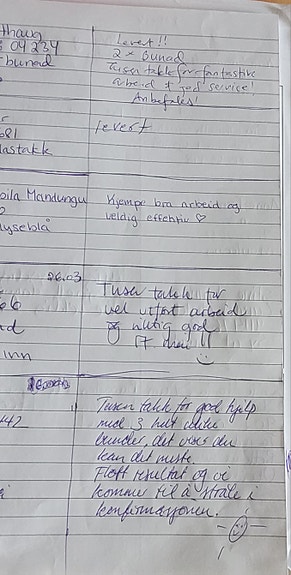 thaug
04234
bunad
Levert!!
2 x Bunad
Tusen takk for fantastisk
arbeid & god service!
Anbefales!
levert
681
lastakk
oila Mandungu
lyseblå
Kjempe bra arbeid og
veldig effektiv ♡
26.03
66
ad
inn
Tusen takk for
vel utført arbeid
og riktig god
!!
Tusen takk for god hjelp
med 3 helt ulike
bunader, det viser du
kan det meste
Flott resultat og vi
komme til å stråle i
konfirmasjonen.
442